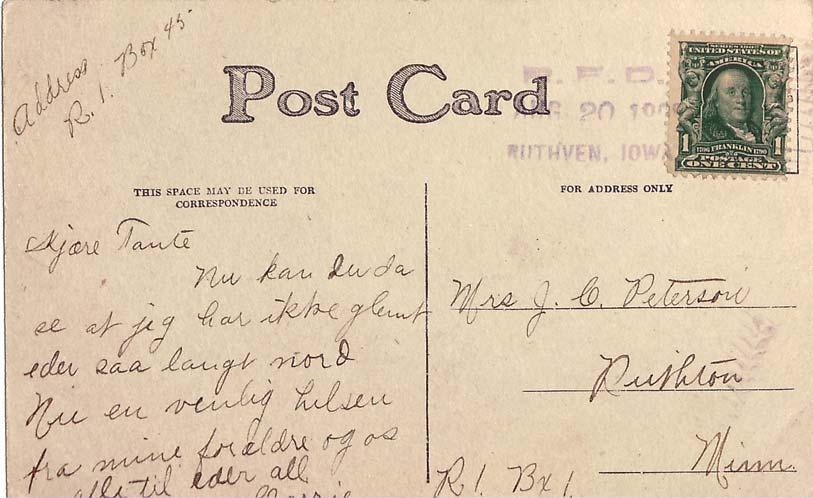 Address
R. 1. Box 45
Post Card
R. F. D.
AUG 20 190
RUTHVEN, IOWA
SERIES 1902
UNITED STATES OF
AMERICA
1706 FRANKLIN 1790
1 1
POSTAGE
ONE CENT
THIS SPACE MAY BE USED FOR
CORRESPONDENCE
FOR ADDRESS ONLY
Kjære Tante
Nu kan du da
se at jeg har ikke glemt
eder saa langt nord
Nu en venlig hilsen
fra mine forældre og os
alle til eder all
Mrs J. C. Peterson
Ruthton
Minn.
R 1. Bx 1.